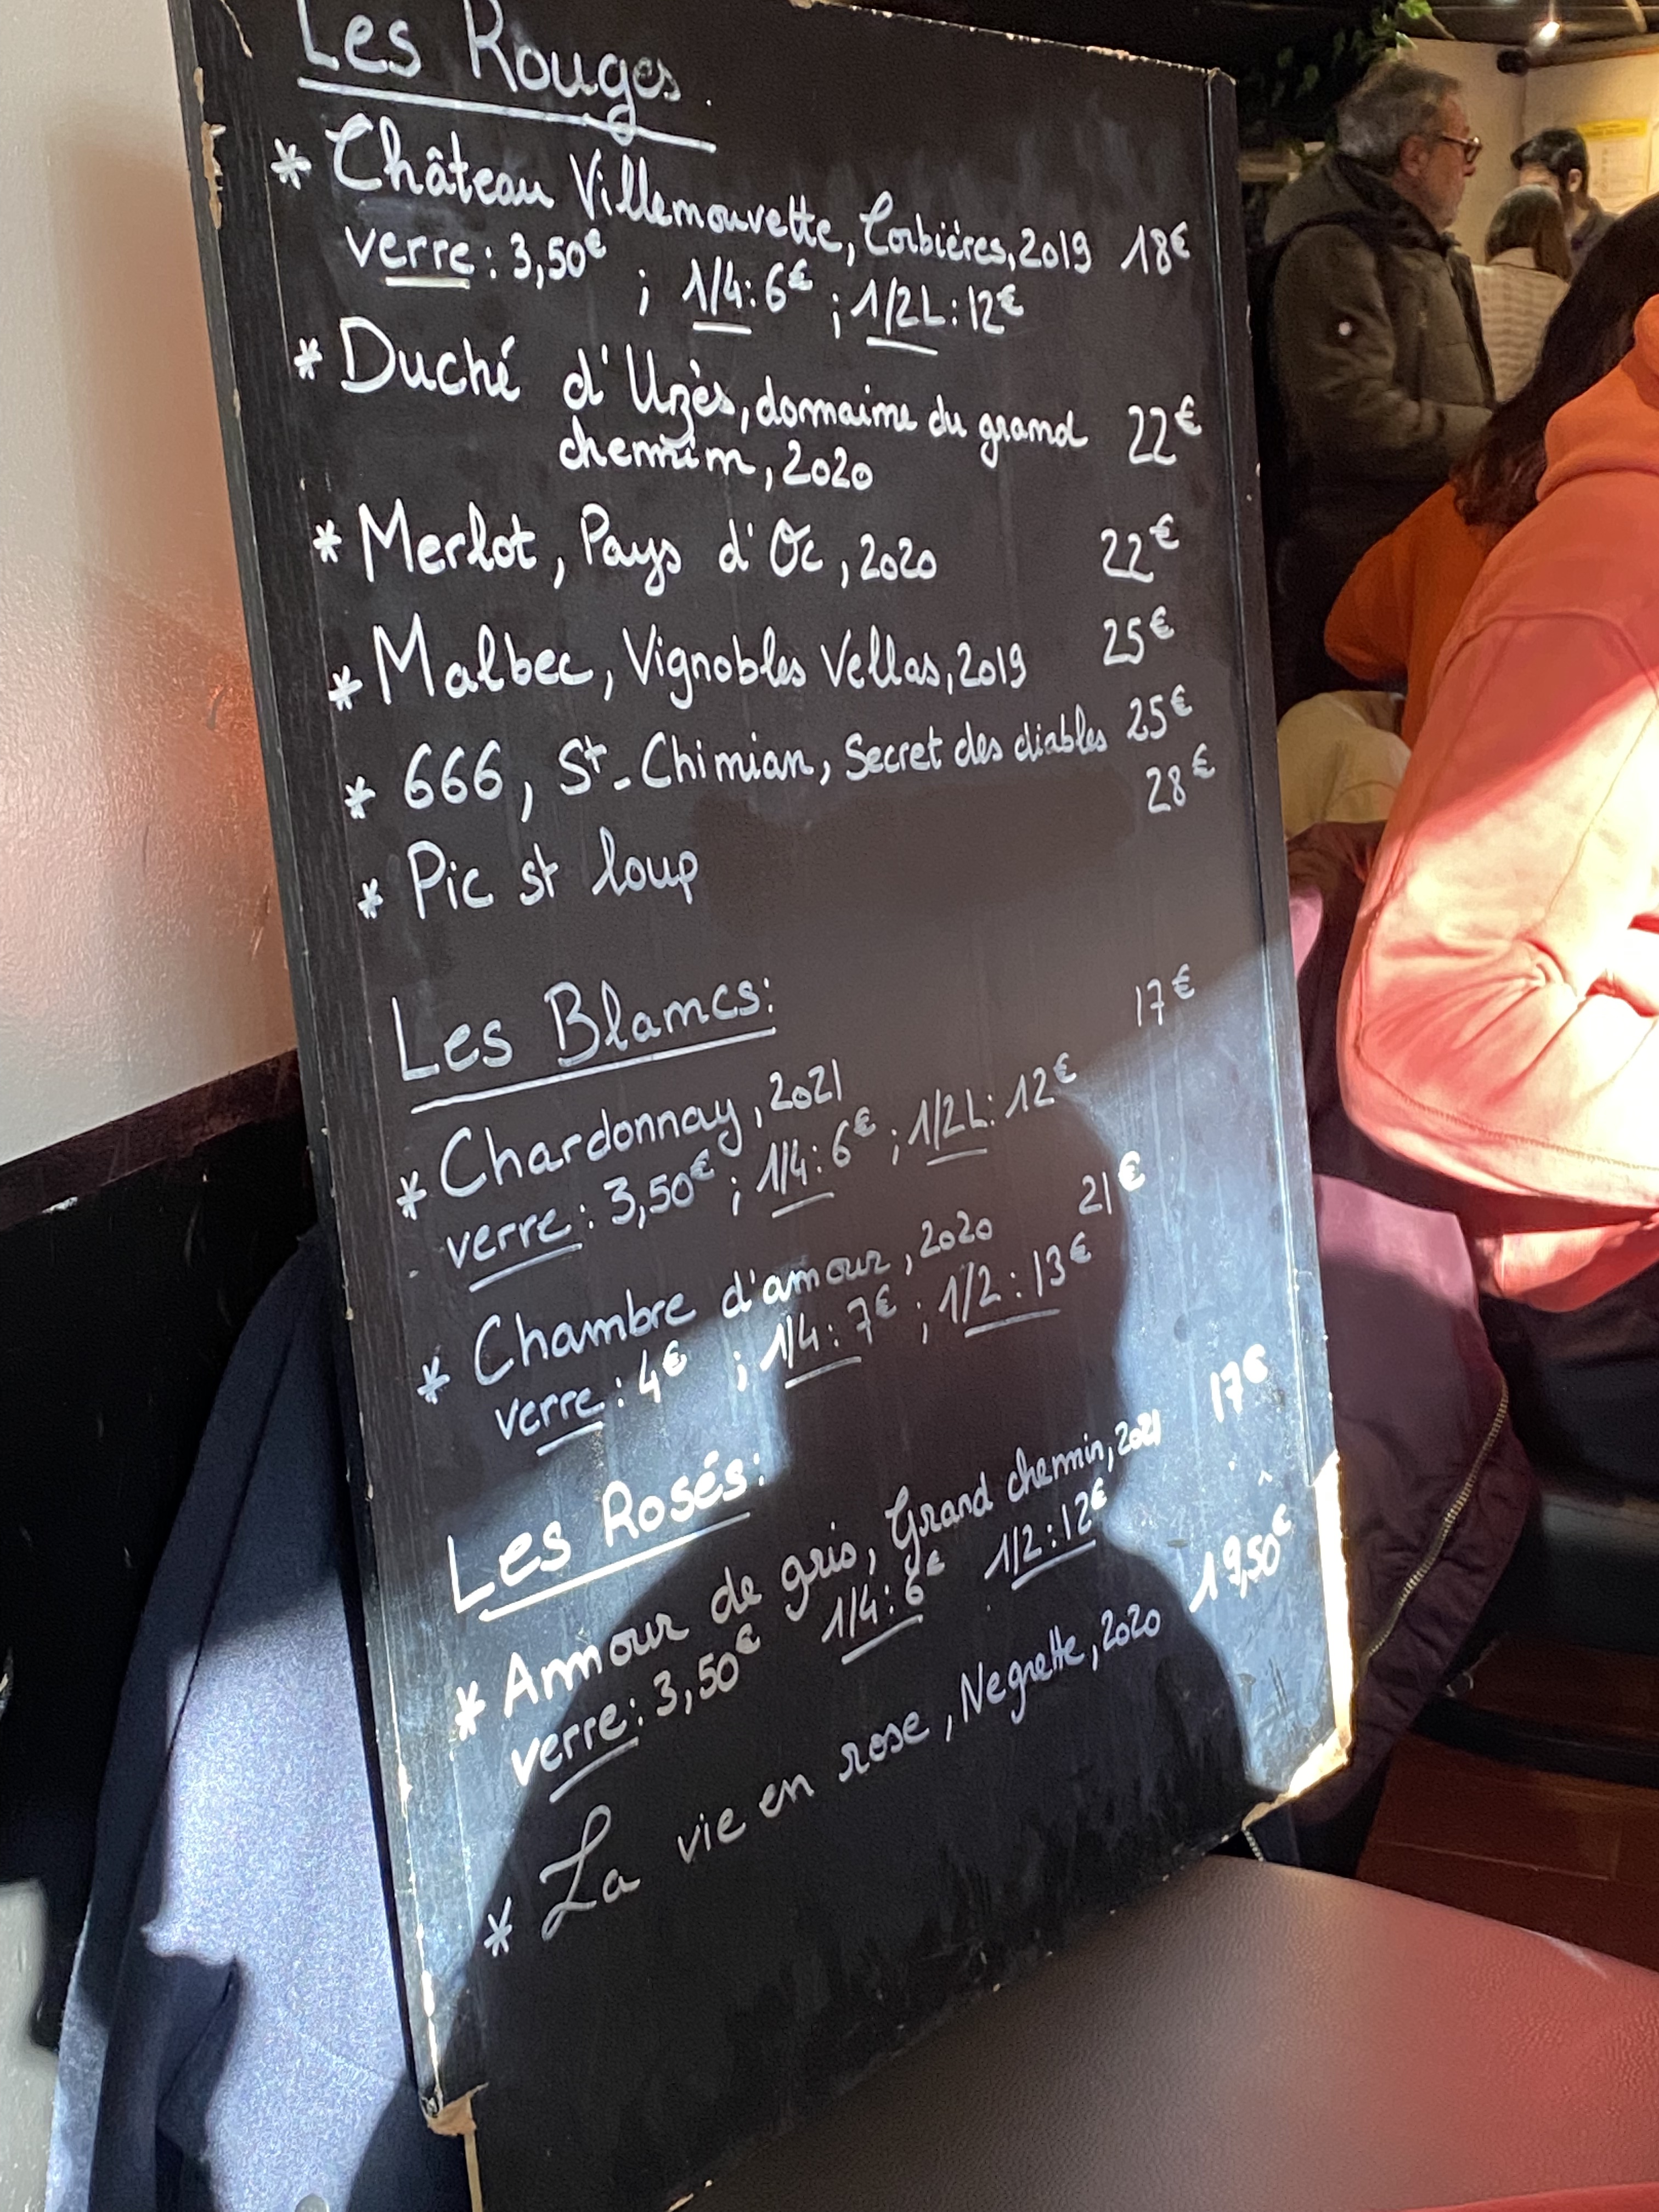 Les Rouges.
* Château Villemouvette, Corbières, 2019 18€
verre : 3,50€ ; 1/4 : 6€ ; 1/2L : 12€
* Duché d'Uzès, domaine du grand 22€
chemin, 2020
* Merlot, Pays d'Oc, 2020 22€
* Malbec, Vignobles Vellas, 2019 25€
* 666, St-Chimian, Secret des diables 25€
* Pic st loup 28€
Les Blancs:
* Chardonnay, 2021 17€
verre : 3,50€ ; 1/4 : 6€ ; 1/2L : 12€
* Chambre d'amour, 2020 21€
verre : 4€ ; 1/4 : 7€ ; 1/2 : 13€
Les Rosés:
* Amour de gris, Grand chemin, 2021 17€
verre : 3,50€ 1/4 : 6€ 1/2 : 12€
* La vie en rose, Negrette, 2020 19,50€